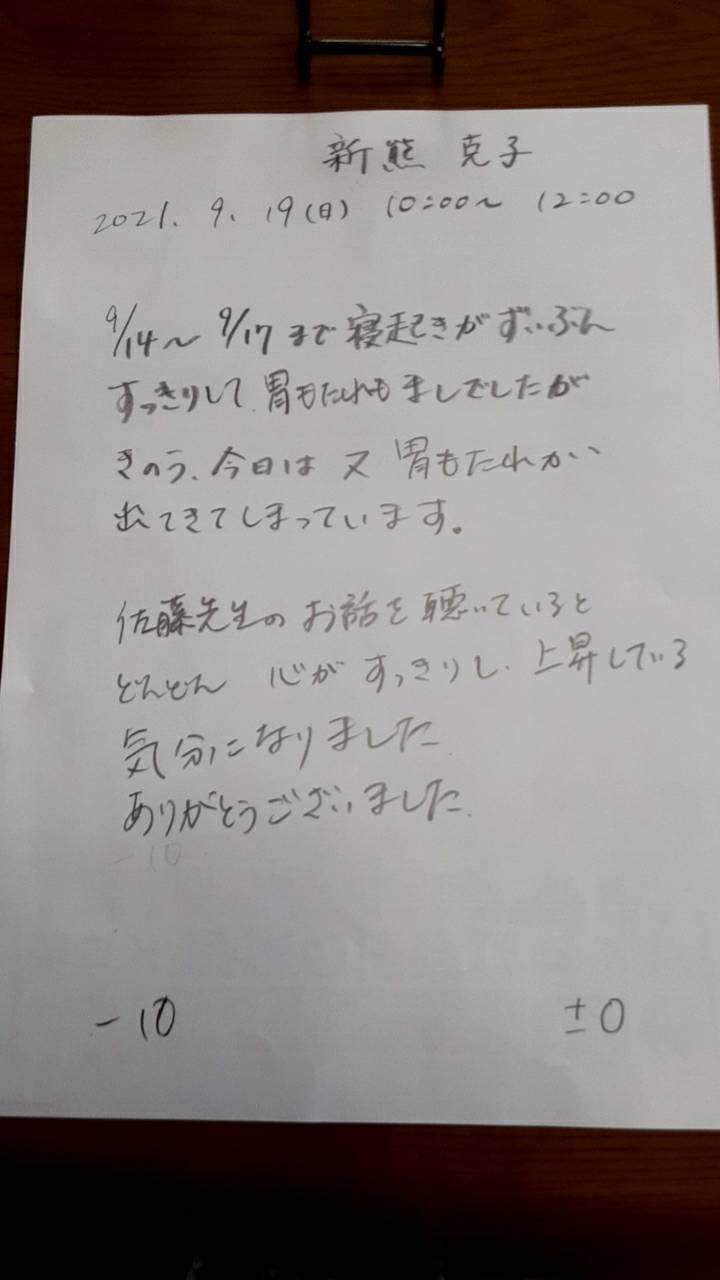 新熊 克子
2021. 9. 19(日) 10:00〜 12:00
9/14〜 9/17 まで 寝起きが ずいぶん
すっきりして、胃もたれも ましでしたが
きのう、今日は 又 胃もたれが
出てきてしまっています。
佐藤先生の お話を 聴いていると
どんどん 心が すっきりし、上昇している
気分になりました
ありがとうございました
-10
-10 ±0